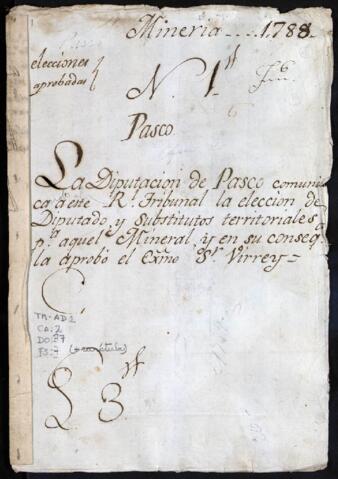 Mineria... 1788.
elecciones
aprobadas
N. 1.
Pasco
La Diputacion de Pasco comuni
ca à este Rl. Tribunal la eleccion de
Diputado, y Substitutos territoriales
pa. aquel Mineral, y en su conseqa.
la aprobó el Exmo Sr. Virrey=
TM-AD2
CA: 2
DO: 27
FS: 7 (+ carátula)
L 3